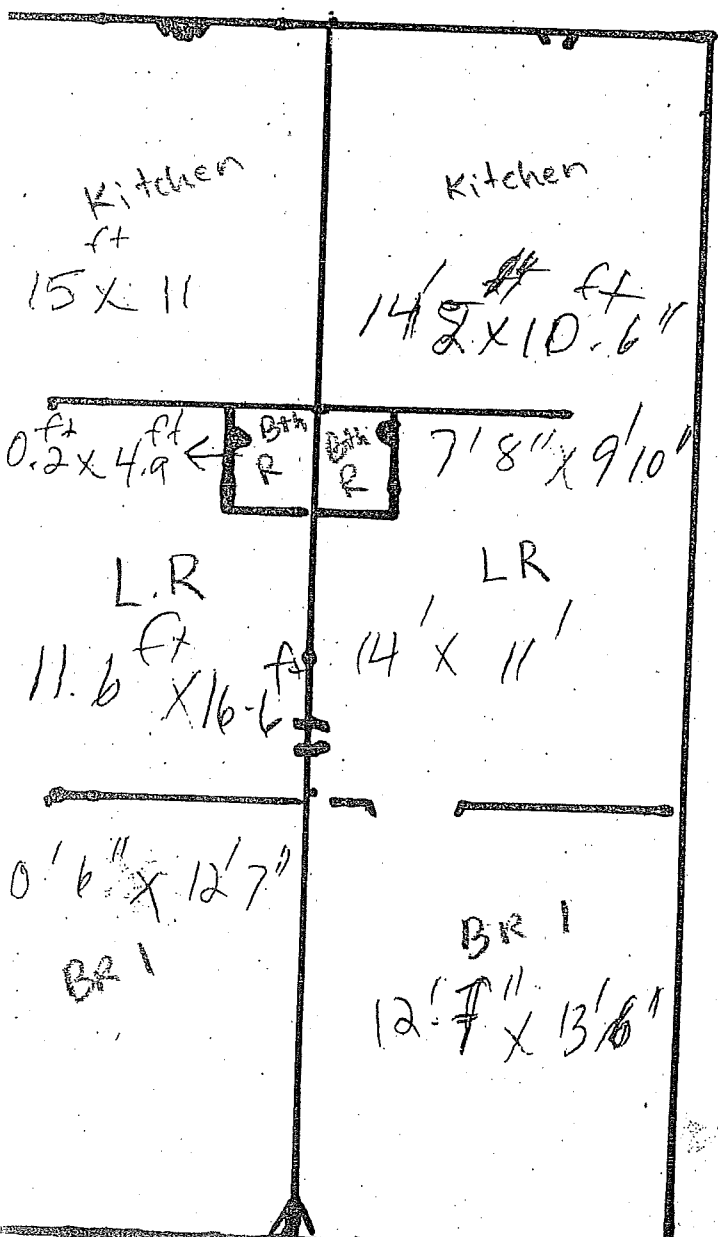 Kitchen
ft
15 X 11
Kitchen
ft
14' 2 X 10.6"
0.2 ft x 4.9 ft
Bth
R
Bth
R
7' 8" X 9' 10"
L.R
11.6 ft X 16-6 ft
LR
14' X 11'
0' 6" X 12' 7"
BR 1
BR 1
12' 7" X 13' 6"